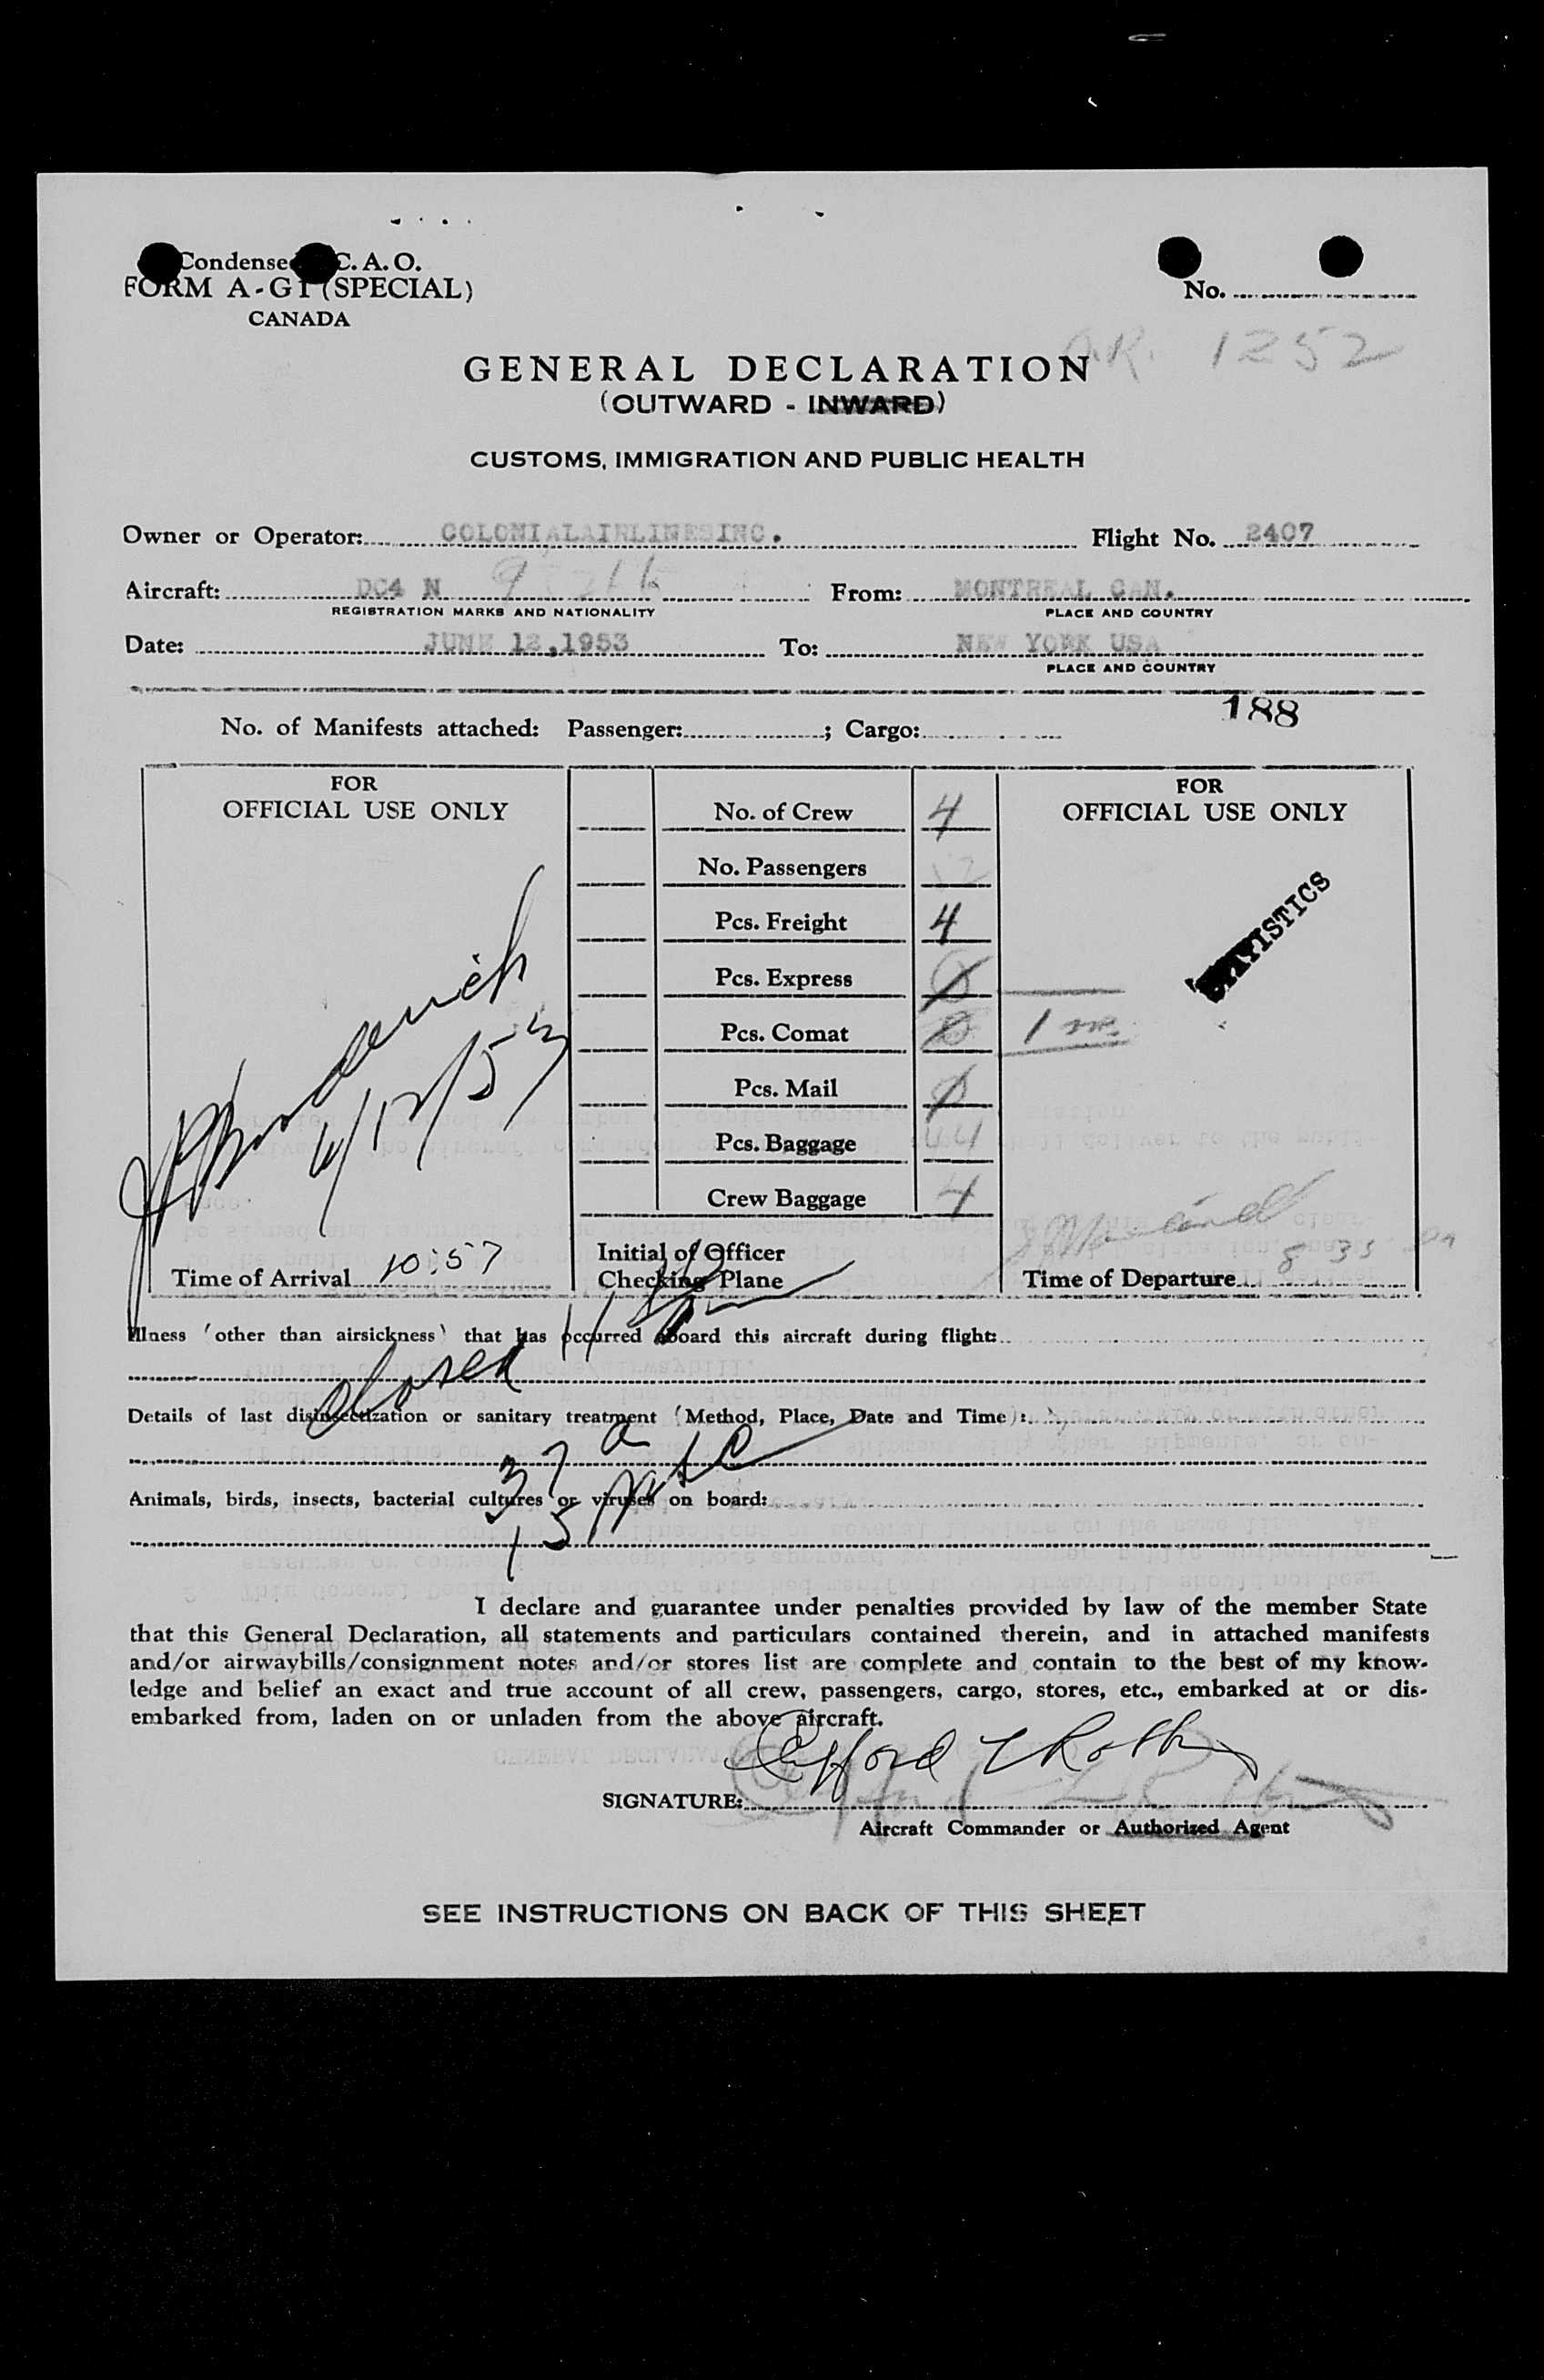 Condensed C. A. O.
FORM A-G1 (SPECIAL)
CANADA
No.
1252
GENERAL DECLARATION
(OUTWARD - INWARD)
CUSTOMS, IMMIGRATION AND PUBLIC HEALTH
Owner or Operator: COLONIALAIRLINESINC. Flight No. 2407
Aircraft: DC4 N From: MONTREAL CAN.
REGISTRATION MARKS AND NATIONALITY PLACE AND COUNTRY
Date: JUNE 12,1953 To: NEW YORK USA
PLACE AND COUNTRY
188
No. of Manifests attached: Passenger: ; Cargo:
FOR
OFFICIAL USE ONLY
6/12/53
Time of Arrival 10:57
No. of Crew 4
No. Passengers
Pcs. Freight 4
Pcs. Express 0
Pcs. Comat 0
Pcs. Mail 0
Pcs. Baggage 44
Crew Baggage 4
Initial of Officer
Checking Plane
FOR
OFFICIAL USE ONLY
STATISTICS
Time of Departure 8 35
Illness (other than airsickness) that has occurred aboard this aircraft during flight:
Closed
Details of last disinsectization or sanitary treatment (Method, Place, Date and Time):
37
Animals, birds, insects, bacterial cultures or viruses on board:
15
I declare and guarantee under penalties provided by law of the member State
that this General Declaration, all statements and particulars contained therein, and in attached manifests
and/or airwaybills/consignment notes and/or stores list are complete and contain to the best of my know-
ledge and belief an exact and true account of all crew, passengers, cargo, stores, etc., embarked at or dis-
embarked from, laden on or unladen from the above aircraft.
SIGNATURE:
Aircraft Commander or Authorized Agent
SEE INSTRUCTIONS ON BACK OF THIS SHEET